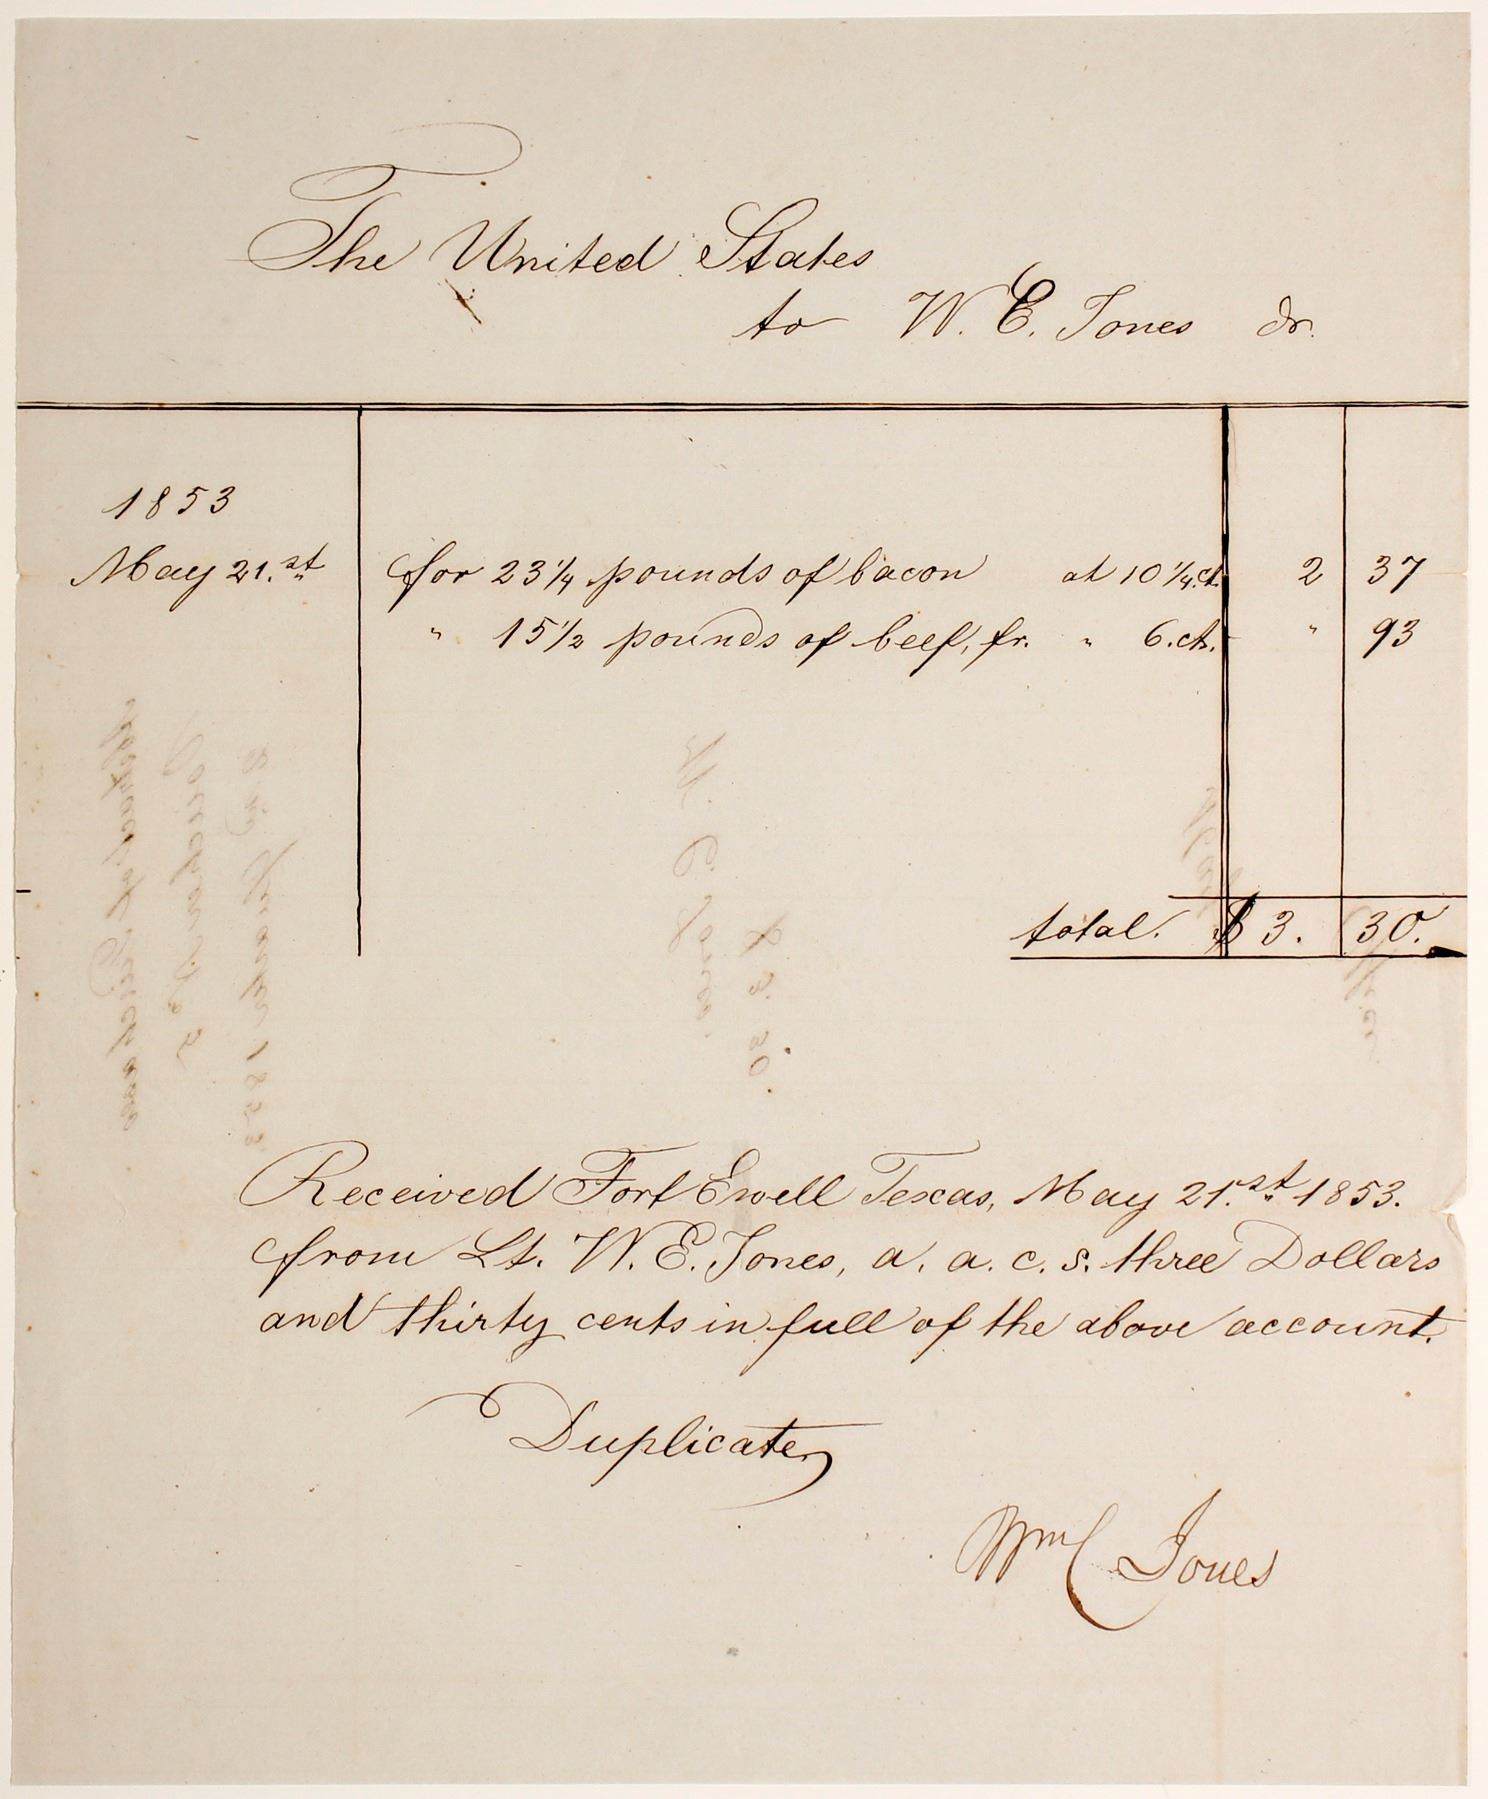 The United States
to W. E. Jones dr.
1853
May 21.st for 23 1/4 pounds of bacon at 10 1/4.ct. 2 37
" 15 1/2 pounds of beef, fr. " 6.cts. " 93
total. $ 3. 30.
Received Fort Ewell Texas, May 21.st 1853.
from Lt. W. E. Jones, a. a. c. s. three Dollars
and thirty cents in full of the above account.
Duplicate
Wm E Jones